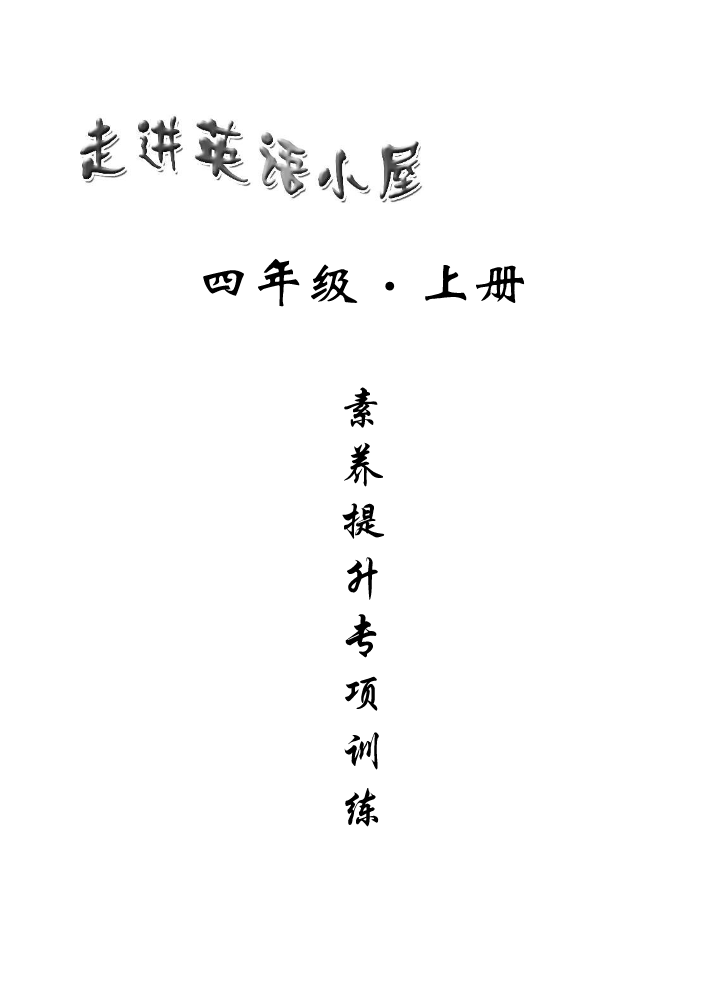 走进英语小屋
四年级·上册
素养提升专项训练